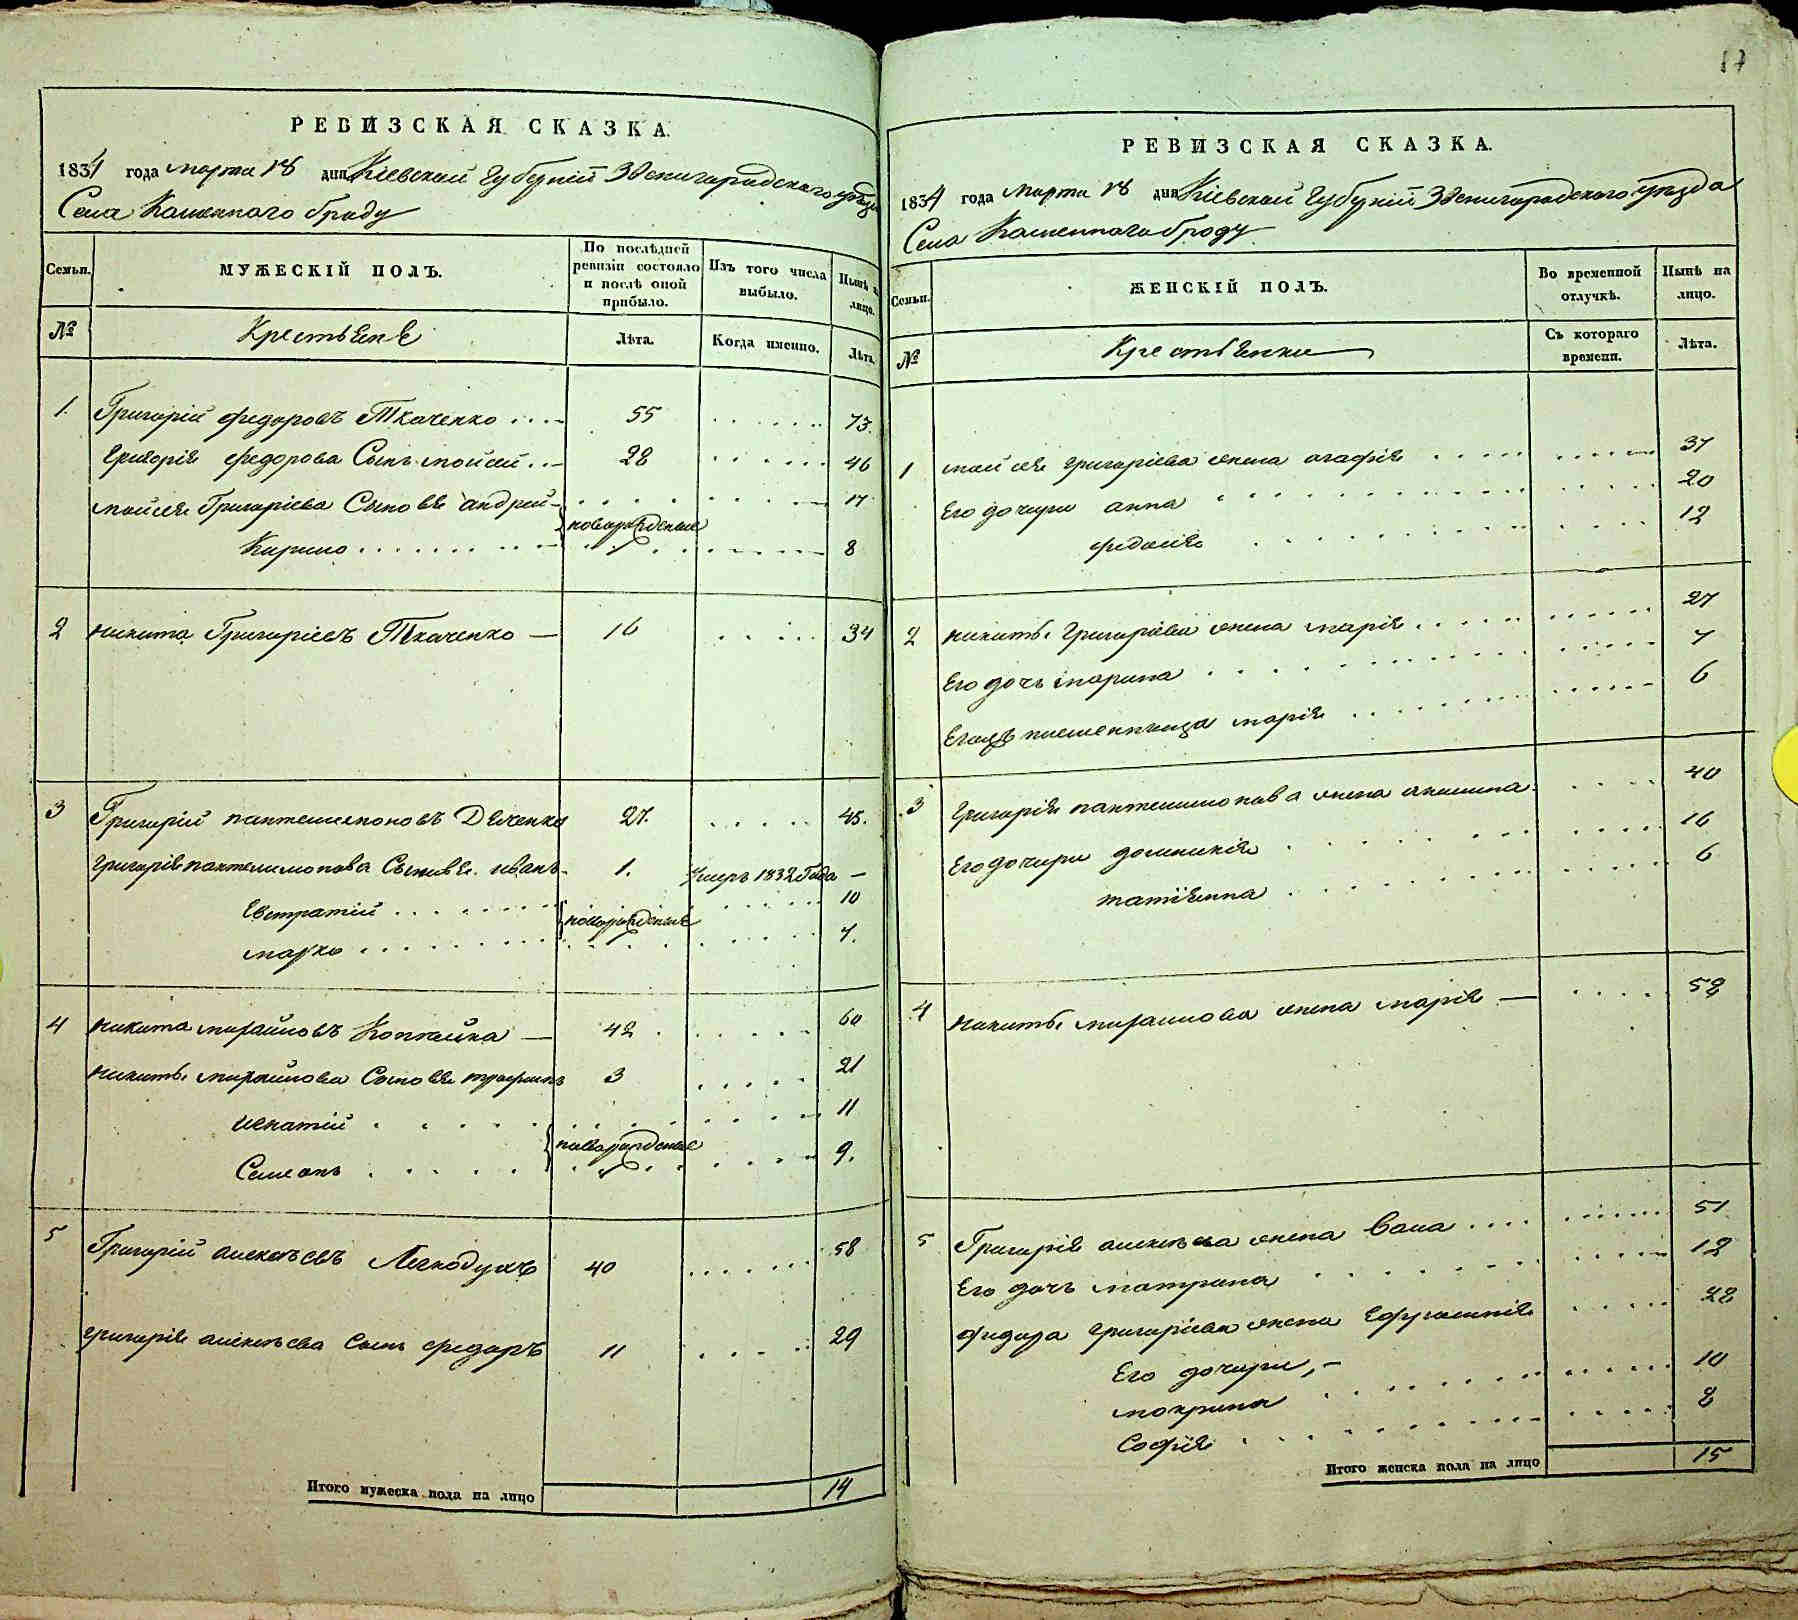 17
РЕВИЗСКАЯ СКАЗКА.
1834 года марта 18 дня Кіевской Губерніи Звенигородского уезда
Села Каменного Броду
Семьи.
МУЖЕСКІЙ ПОЛЪ.
По послѣдней ревизіи состояло и послѣ оной прибыло.
Изъ того числа выбыло.
Нынѣ на лицо.
№
Крестьяне
Лѣта.
Когда именно.
Лѣта.
1. Григорій федоровъ Ткаченко 55 73.
Григорія федорова Сынъ мойсей 28 46
мойсея Григоріева Сыновья андрей 17
новорожденные
Кирило 8
2 никита Григоріевъ Ткаченко 16 34
3 Григорій пантелимоновъ Дяченко 27. 45.
григорія пантелимонова Сыновья. иванъ 1. Умеръ 1832 Года
Евстратій 10
новорожденные
марко 7.
4 никита Коптейка 42 60
никиты Сыновья трофимъ 3 21
игнатій 11
новорожденные
Семенъ 9.
5 Григорій алексѣевъ Легкодухъ 40 58
григорія алексѣева Сынъ федоръ 11 29
Итого мужеска пола на лицо 14
РЕВИЗСКАЯ СКАЗКА.
1834 года марта 18 дня Кіевской Губерніи Звенигородского уезда
Села Каменного Броду
Семьи.
ЖЕНСКІЙ ПОЛЪ.
Во временной отлучкѣ.
Нынѣ на лицо.
№
Крестьянки
Съ котораго времени.
Лѣта.
1 мойсея григоріева жена агафія 37
Его дочери анна 20
федосія 12
2 никиты григоріева жена марія 27
Его дочь марина 7
Его племенница марія 6
3 Григорія пантелимонова жена акилина 40
Его дочери домникія 16
татіянна 6
4 никиты жена марія 58
5 Григорія алексѣева жена 51
Его дочь матрина 12
федора григоріева жена Ефросинія 28
Его дочери,
мокрина 10
Софія 8
Итого женска пола на лицо 15